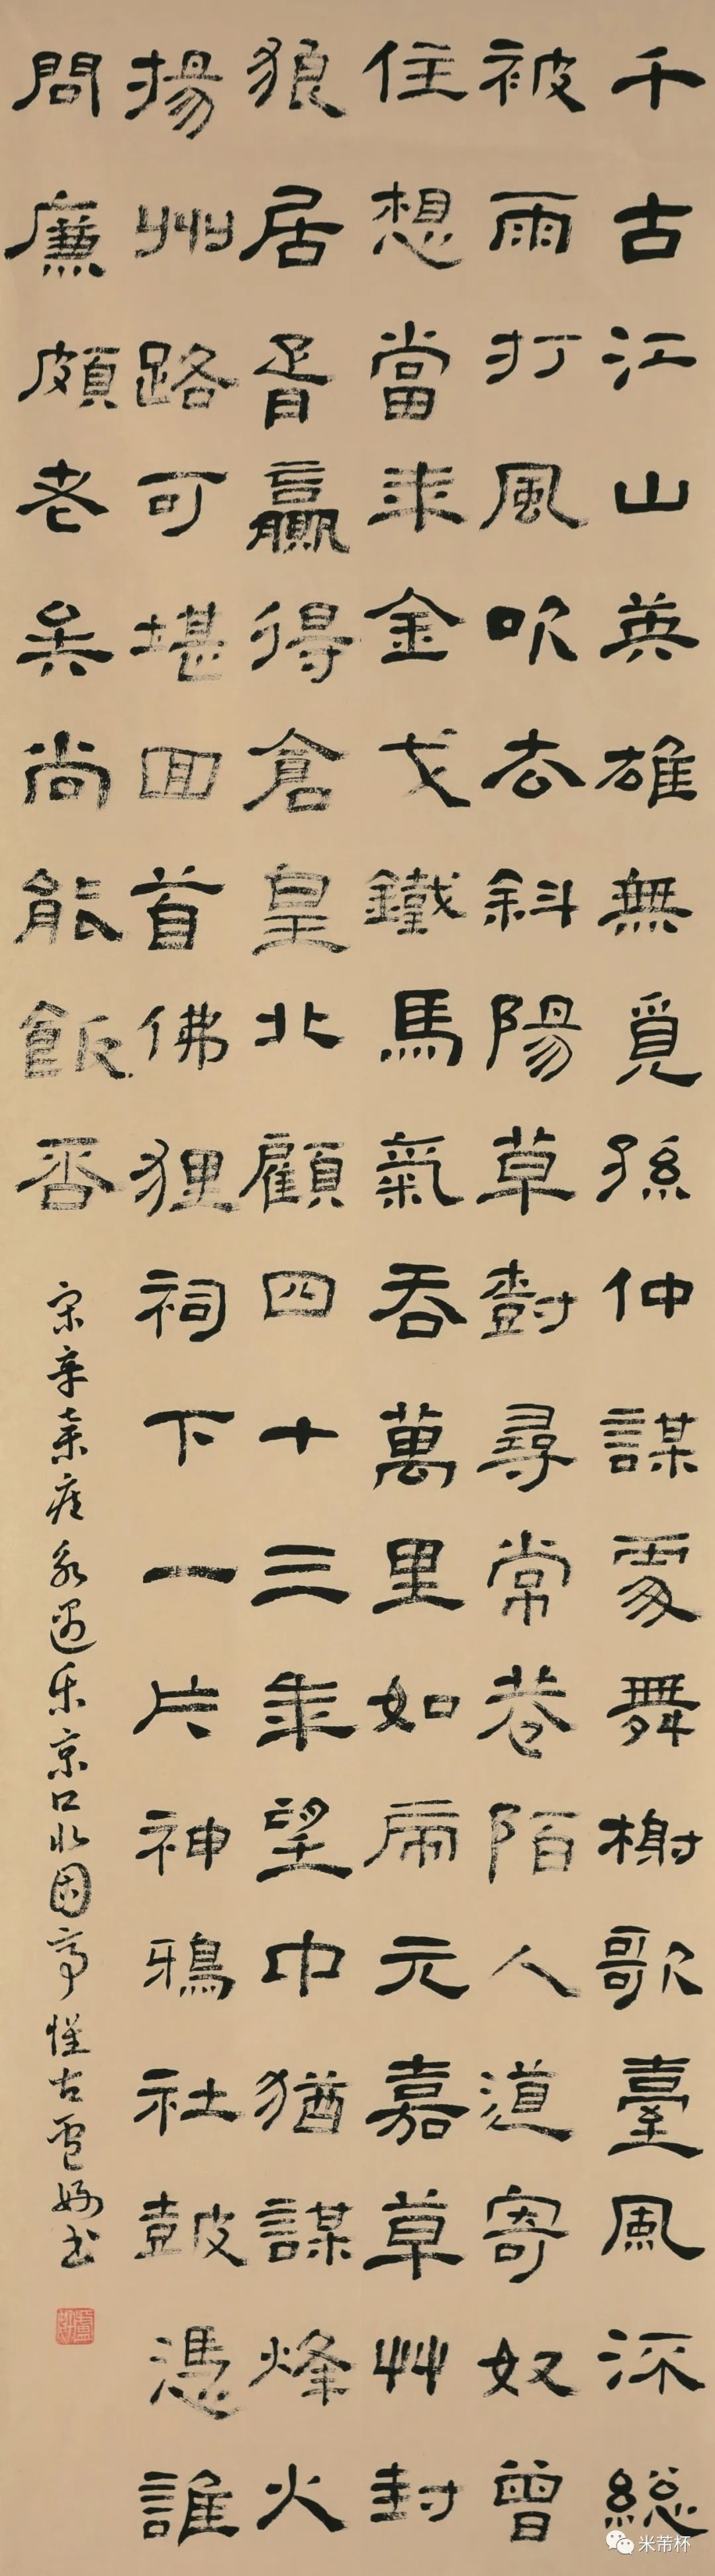 千古江山英雄無覓孫仲謀處舞榭歌臺風流總
被雨打風吹去斜陽草樹尋常巷陌人道寄奴曾
住想當年金戈鐵馬氣吞萬里如虎元嘉草艸封
狼居胥贏得倉皇北顧四十三年望中猶謀烽火
揚州路可堪回首佛狸祠下一片神鴉社鼓憑誰
問廉頗老矣尚能飯否
宋辛棄疾永遇乐京口北固亭懷古盧书
米芾杯